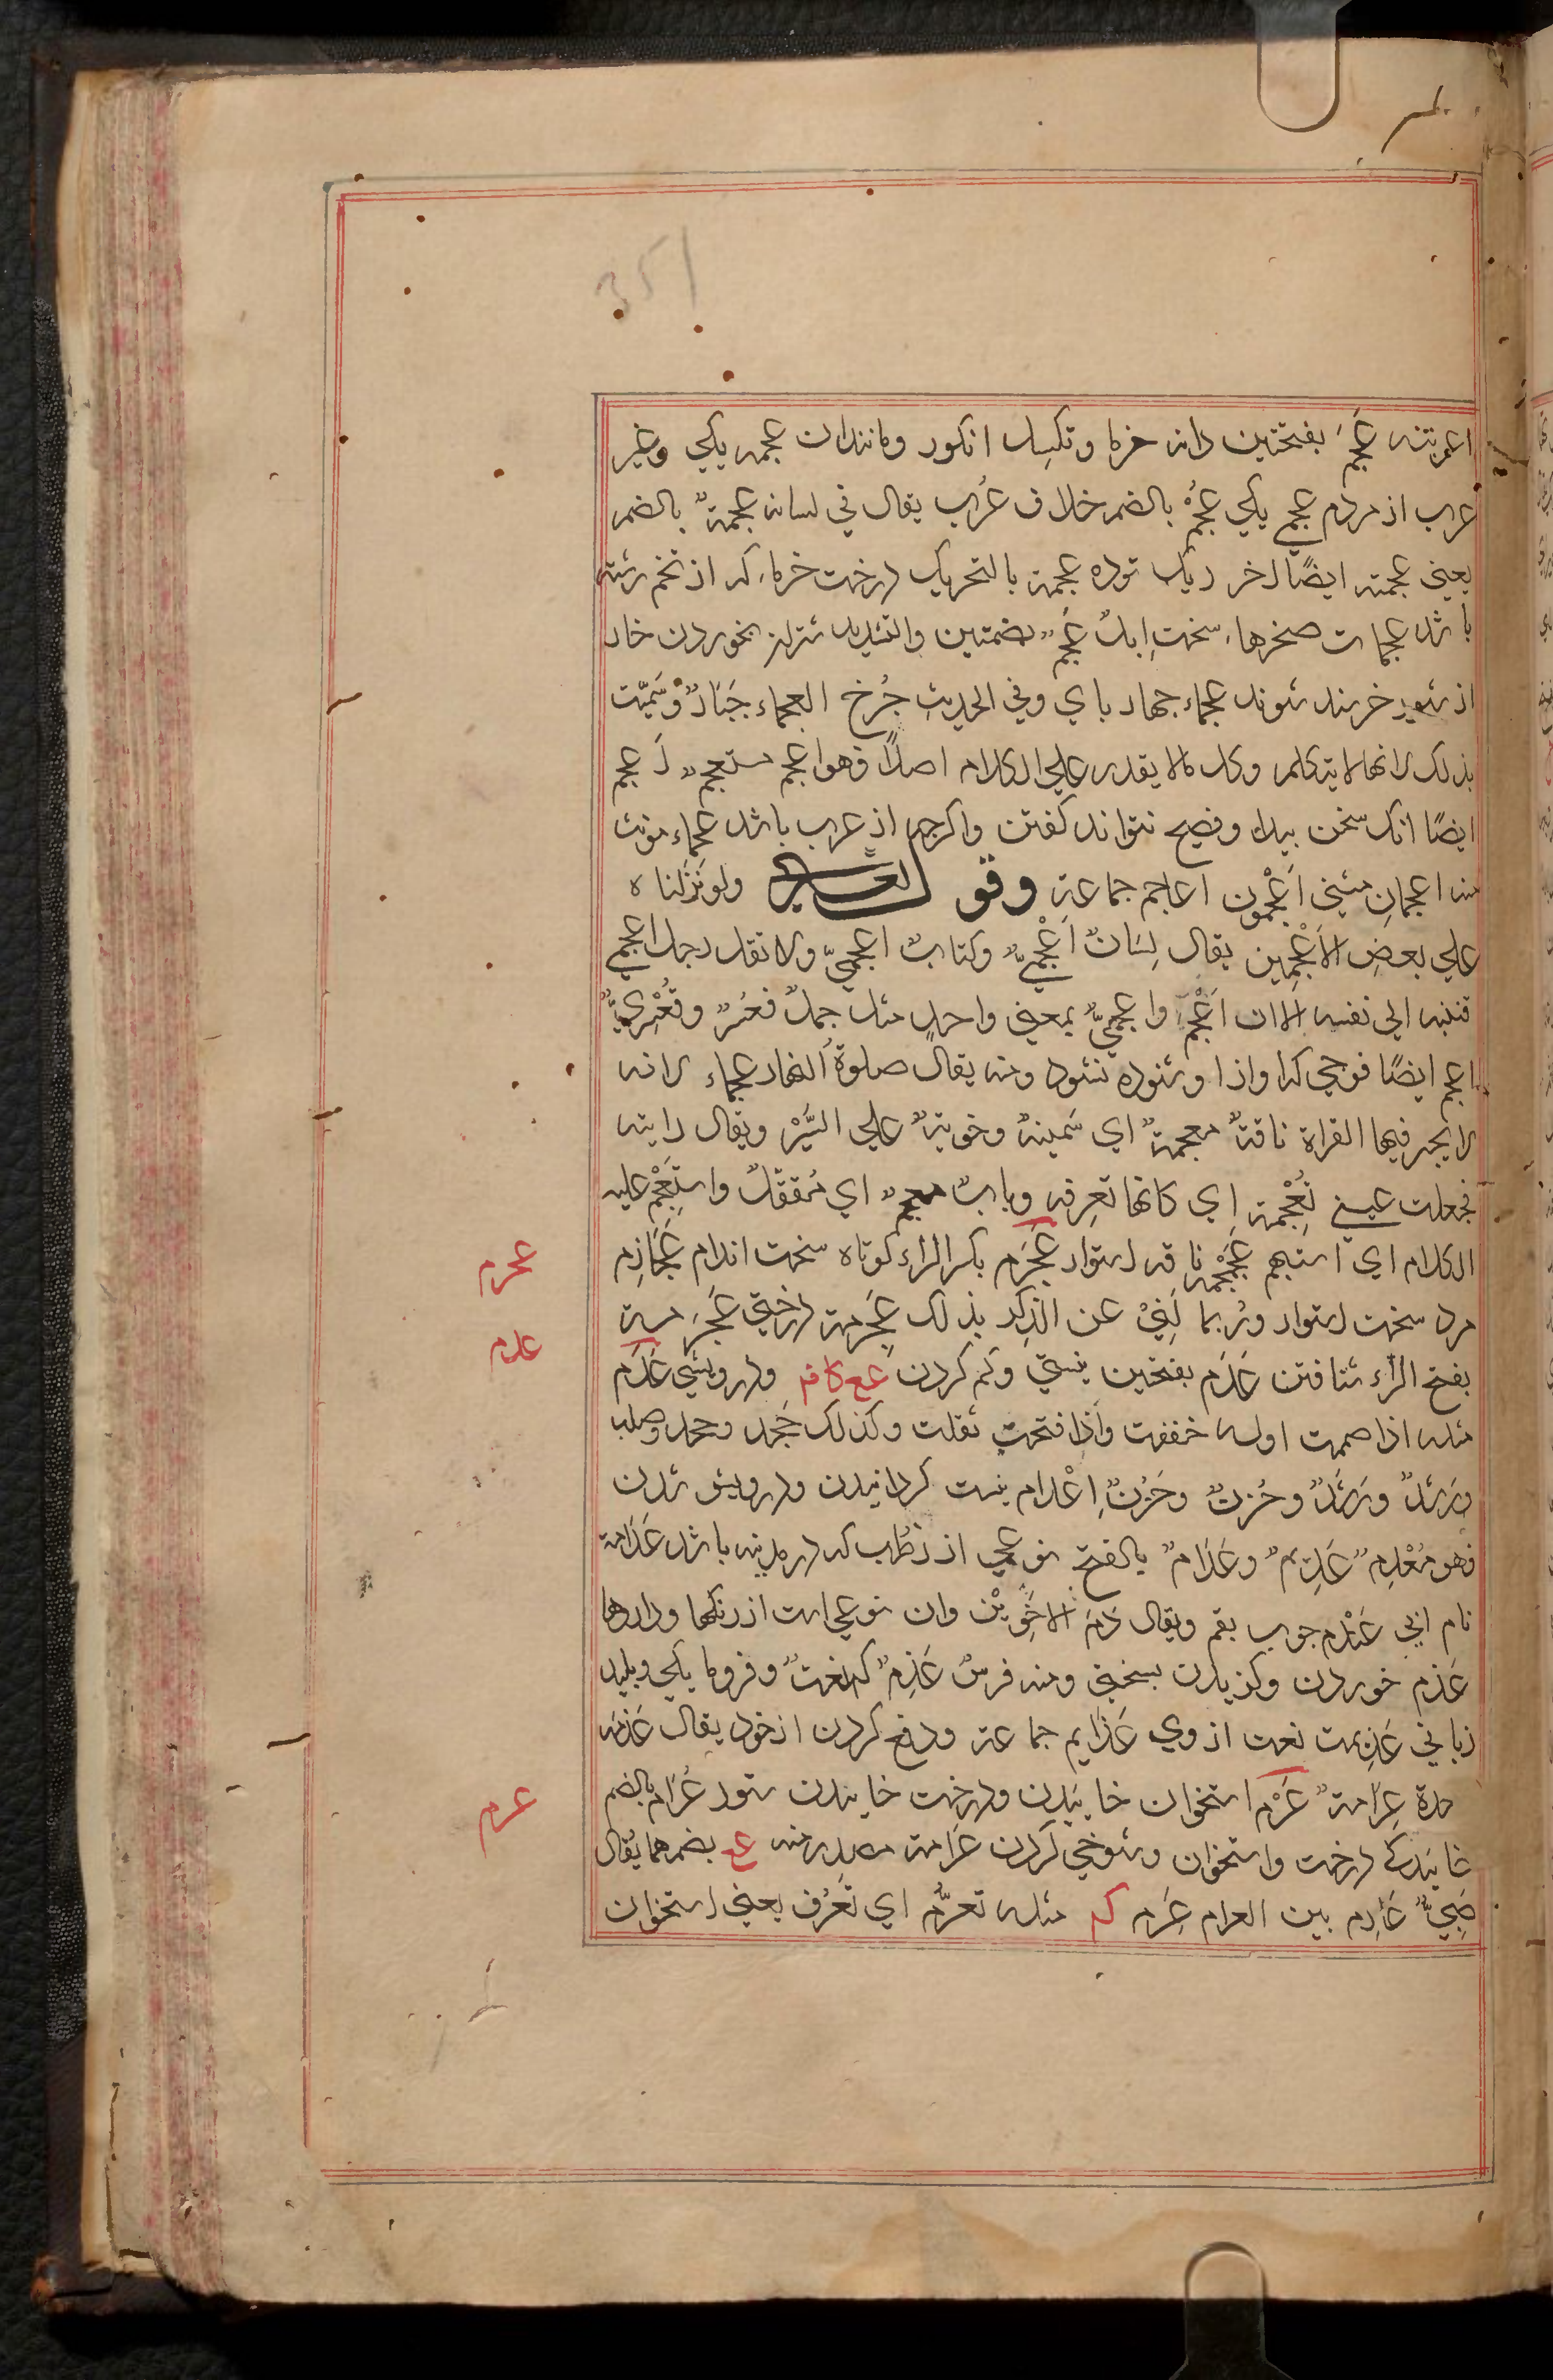 351
اعمرتنه عَجَمَ بفتحتین دانه خرما وتکسل انکور ومانندان عجمه یکی وغیر
عرب از مردم عجمی یکی عُجْمٌ بالضم خلاف عُرب یقال فی لسانه عجمةٌ بالضم
یعنی عجمته ایضًا اخر ریک توده عجمة بالتحریک درخت خرما که از تخم رسته
باشد عجمات صخرها سخت اِبلٌ عُجُمٌ بضمتین والتشدید شتران بخوردن خار
از شعیر خرسند شوند عجماء جهار بای وفی الحدیث جُرح العجماء جَبَارٌ وسَمیّت
بذلک لانها لا یتکلم وکل مالا یقدر علی الکلام اصلاً فهو اعجم مستعجمٌ اَعجم
ایضًا انک سخن بیدا وفصیح نتواند کفتن واکرچه از عرب باشد عجماء مونث
منه اعجمانِ مثنی اَعْجَمُون اعاجم جماعة وقوله تعالی ولو نَزَّلناه
علی بعضِ الاَعْجَمِین یقال لِسَانٌ اَعْجَمِیٌّ وکتابٌ اعجمیٌّ ولا تقل رجل اعجمی
فتنسبه الی نفسه الا ان اَعْجَمَ واعجمیٌّ بمعنی واحدٍ مثل جملٌ قعسرٌ وقَعْسَرِیٌّ
اعجم ایضًا موجی که اواز او شنوده نشود ومنه یقال صلوةُ النهار عجماء لانه
لا یجهر فیها القراة ناقةٌ معجمةٌ ای سَمینةٌ وخویةٌ علی السَّیْر ویقال رایته
فجعلت عینی تُعْجِمة اِی کانها تعرفه وبابٌ معجمٌ ای مُقفّلٌ واستعجم علیه
الکلام ای استبهم عَجَمْجَمة ناقه استوار عَجْرَم بکسر الراء کوتاه سخت اندام عُجَارِم
عجرم
مرد سخت استوار ورُبما کَنِیَ عن الذکر بذلک عِجْرِمة درختی عَجْرَمة
بفتح الراء شتافتن عَدَم بفتحتین نیستی وکم کردن عع کافه ودرویشی عُدْم
عدم
مثله اذا ضممت اوله خففت واذا فتحت ثقلت وکذلک جُحْد وجحد وصلب
ورُشْدٌ ورَشَدٌ وحُزنٌ وحَزَنٌ اِعْدام نیست کردانیدن ودرویش شدن
فهو مُعْدِمٌ عَدِیمٌ وعَدَامٌ بالفتح نوعی از رُطَب که در مدینه باشد عَدَامة
نام ابی عَنْدَم چوب بقم ویقال دَمَ الاَخَوَیْن وان نوعی است از رنکها وداروها
عَذم خوردن وکزیدن بسختی ومنه فرسٌ عَذِمٌ که نعتٌ وفرومایکی وبلید
زبانی عَذِیمَت نعت از وی عَذَایم جماعة ودفع کردن از خود یقال عَذَمَه
حدة عِرَامةٌ عَرْم استخوان خاییدن ودرخت خاییدن ستور عُرَام بالضم
عرم
خاییدکی درخت واستخوان وشوخی کردن عَرامة مصدر منه عع بضمهما یقال
صَبِیٌّ عَارِم بین العرام عَرِم که مثله تعرُّم ای تعرُّف یعنی استخوان